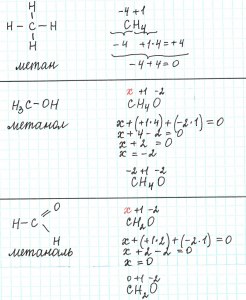 H
H – C – H
H
метан
-4 +1
CH₄
-4 +1·4=+4
-4+4=0
H₃C–OH
метанол
x +1 -2
CH₄O
x+(+1·4)+(-2·1)=0
x+4-2=0
x+2=0
x=-2
-2 +1 -2
CH₄O
H–C
O
H
метаналь
x +1 -2
CH₂O
x+(+1·2)+(-2·1)=0
x+2-2=0
x=0
0 +1 -2
CH₂O